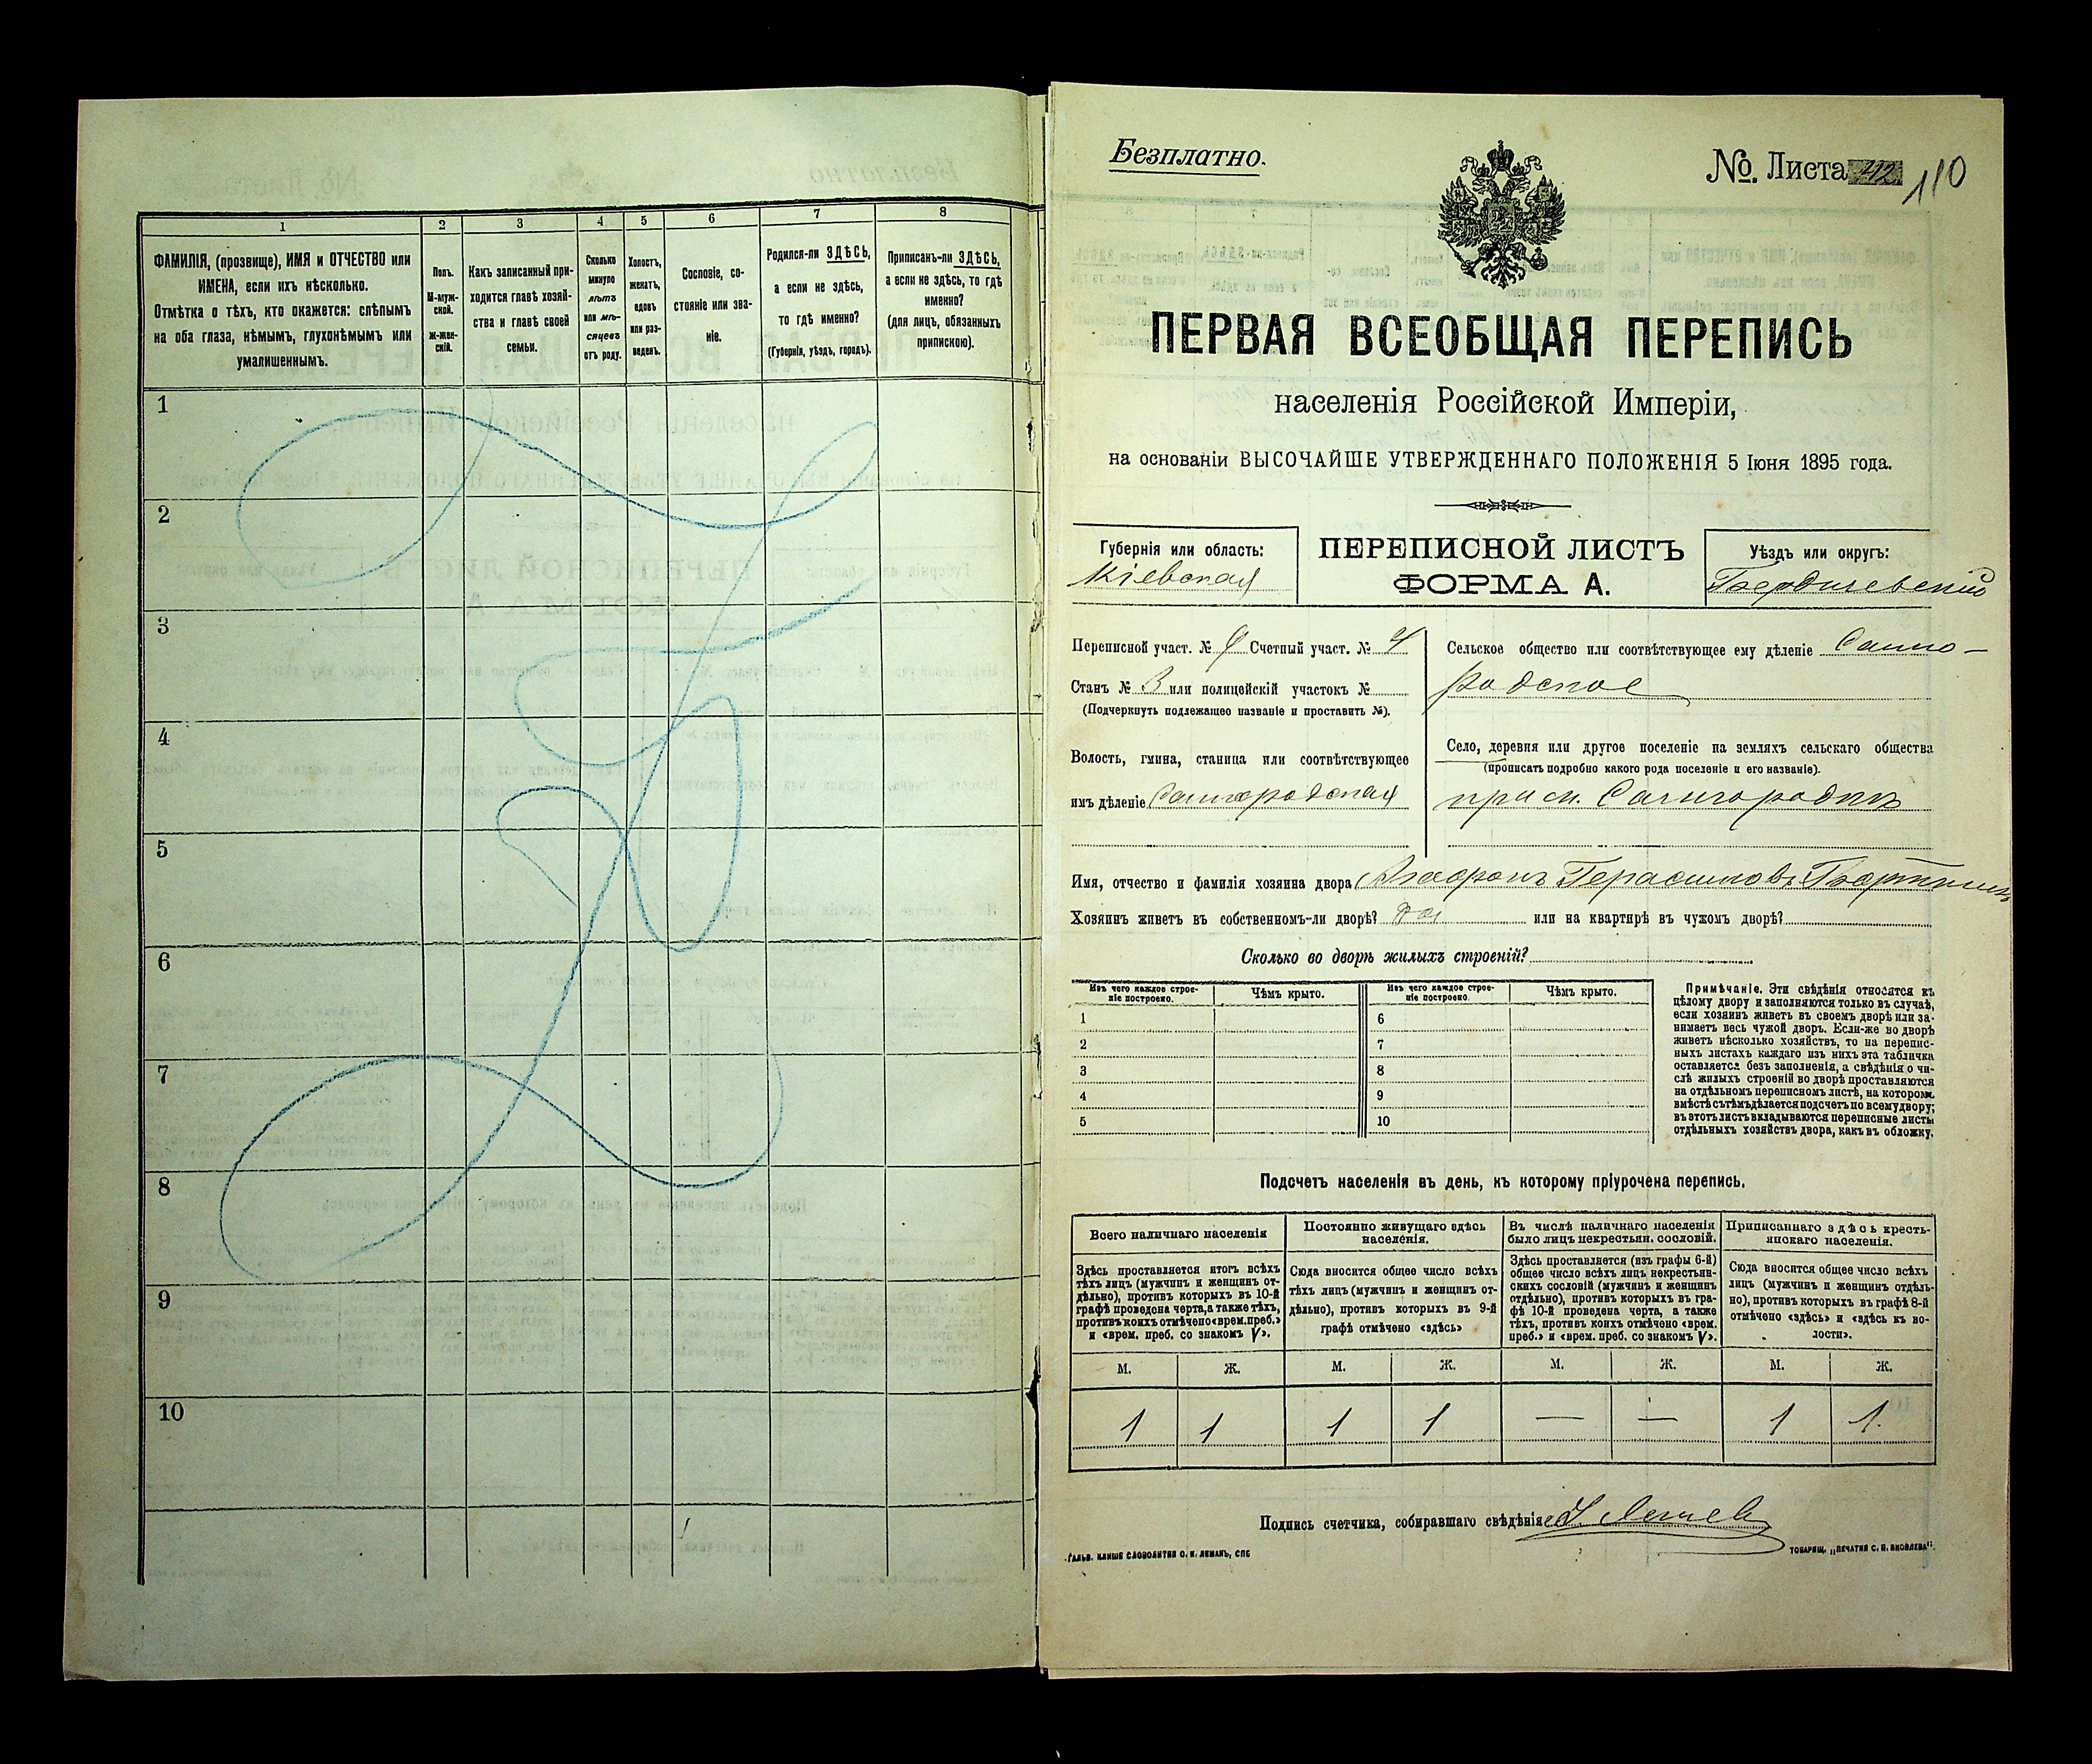 1
2
3
4
5
6
7
8
ФАМИЛІЯ, (прозвище), ИМЯ и ОТЧЕСТВО или
ИМЕНА, если ихъ нѣсколько.
Отмѣтка о тѣхъ, кто окажется: слѣпымъ
на оба глаза, нѣмымъ, глухонѣмымъ или
умалишеннымъ.
Полъ.
М-муж-
ской.
Ж-жен-
скій.
Какъ записанный при-
ходится главѣ хозяй-
ства и главѣ своей
семьи.
Сколько
минуло
лѣтъ
или мѣ-
сяцевъ
отъ роду.
Холостъ,
женатъ,
вдовъ
или раз-
веденъ.
Сословіе, со-
стояніе или зва-
ніе.
Родился-ли ЗДѢСЬ,
а если не здѣсь,
то гдѣ именно?
(Губернія, уѣздъ, городъ).
Приписанъ-ли ЗДѢСЬ,
а если не здѣсь, то гдѣ
именно?
(для лицъ, обязанныхъ
припискою).
1
2
3
4
5
6
7
8
9
10
Безплатно.
№. Листа 110
ПЕРВАЯ ВСЕОБЩАЯ ПЕРЕПИСЬ
населенія Россійской Имперіи,
на основаніи ВЫСОЧАЙШЕ УТВЕРЖДЕННАГО ПОЛОЖЕНІЯ 5 Іюня 1895 года.
Губернія или область:
Кіевская
ПЕРЕПИСНОЙ ЛИСТЪ
ФОРМА А.
Уѣздъ или округъ:
Бердичевскій
Переписной участ. № Счетный участ. № 4
Станъ № 3 или полицейскій участокъ №
(Подчеркнуть подлежащее названіе и проставить №).
Волость, гмина, станица или соотвѣтствующее
имъ дѣленіе Самгородская
Сельское общество или соотвѣтствующее ему дѣленіе Самго-
родское
Село, деревня или другое поселеніе на земляхъ сельскаго общества
(прописать подробно какого рода поселеніе и его названіе).
при м. Самгородкѣ
Имя, отчество и фамилія хозяина двора Герасимовъ
Хозяинъ живетъ въ собственномъ-ли дворѣ? да или на квартирѣ въ чужомъ дворѣ?
Сколько во дворѣ жилыхъ строеній?
Изъ чего каждое строе-
ніе построено.
Чѣмъ крыто.
Изъ чего каждое строе-
ніе построено.
Чѣмъ крыто.
1
2
3
4
5
6
7
8
9
10
Примѣчаніе. Эти свѣдѣнія относятся къ
цѣлому двору и заполняются только въ случаѣ,
если хозяинъ живетъ въ своемъ дворѣ или за-
нимаетъ весь чужой дворъ. Если-же во дворѣ
живетъ нѣсколько хозяйствъ, то на перепис-
ныхъ листахъ каждаго изъ нихъ эта табличка
оставляется безъ заполненія, а свѣдѣнія о чи-
слѣ жилыхъ строеній во дворѣ проставляются
на отдѣльномъ переписномъ листѣ, на которомъ
вмѣстѣ съ тѣмъ дѣлается подсчетъ по всему двору;
въ этотъ листъ вкладываются переписные листы
отдѣльныхъ хозяйствъ двора, какъ въ обложку.
Подсчетъ населенія въ день, къ которому пріурочена перепись.
Всего наличнаго населенія
Постоянно живущаго здѣсь
населенія.
Въ числѣ наличнаго населенія
было лицъ некрестьян. сословій.
Приписаннаго здѣсь кресть-
янскаго населенія.
Здѣсь проставляется итогъ всѣхъ
тѣхъ лицъ (мужчинъ и женщинъ от-
дѣльно), противъ которыхъ въ 10-й
графѣ проведена черта, а также тѣхъ,
противъ коихъ отмѣчено «врем. преб.»
и «врем. преб. со знакомъ V».
Сюда вносится общее число всѣхъ
тѣхъ лицъ (мужчинъ и женщинъ от-
дѣльно), противъ которыхъ въ 9-й
графѣ отмѣчено «здѣсь»
Здѣсь проставляется (изъ графы 6-й)
общее число всѣхъ лицъ некрестьян-
скихъ сословій (мужчинъ и женщинъ
отдѣльно), противъ которыхъ въ гра-
фѣ 10-й проведена черта, а также
тѣхъ, противъ коихъ отмѣчено «врем.
преб.» и «врем. преб. со знакомъ V».
Сюда вносится общее число всѣхъ
лицъ (мужчинъ и женщинъ отдѣль-
но), противъ которыхъ въ графѣ 8-й
отмѣчено «здѣсь» и «здѣсь въ во-
лости».
М. Ж. М. Ж. М. Ж. М. Ж.
1 1 1 1 — — 1 1.
Подпись счетчика, собиравшаго свѣдѣнія
ГАЛЬВ. КЛИШЕ СЛОВОЛИТНИ О. И. ЛЕМАНЪ, СПБ
ТОВАРИЩ. „ПЕЧАТНЯ С. П. ЯКОВЛЕВА".